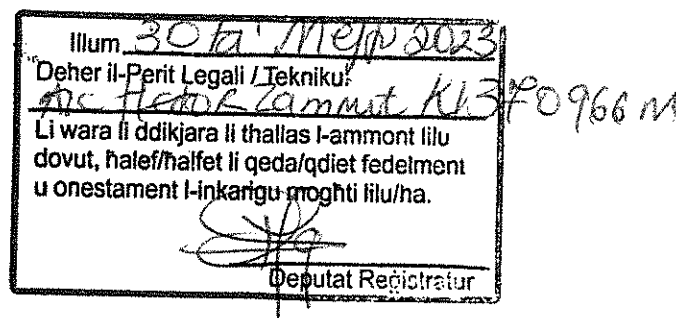 Illum 30 ta' Mejju 2023
Deher il-Perit Legali / Tekniku:
Hector Zammit KI 370966 M
Li wara li ddikjara li tħallas l-ammont lilu
dovut, ħalef/ħalfet li qeda/qdiet fedelment
u onestament l-inkarigu mogħti lilu/ha.
Deputat Reġistratur